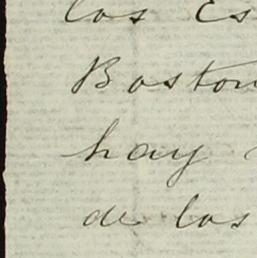 los Es
Boston
hay
de los